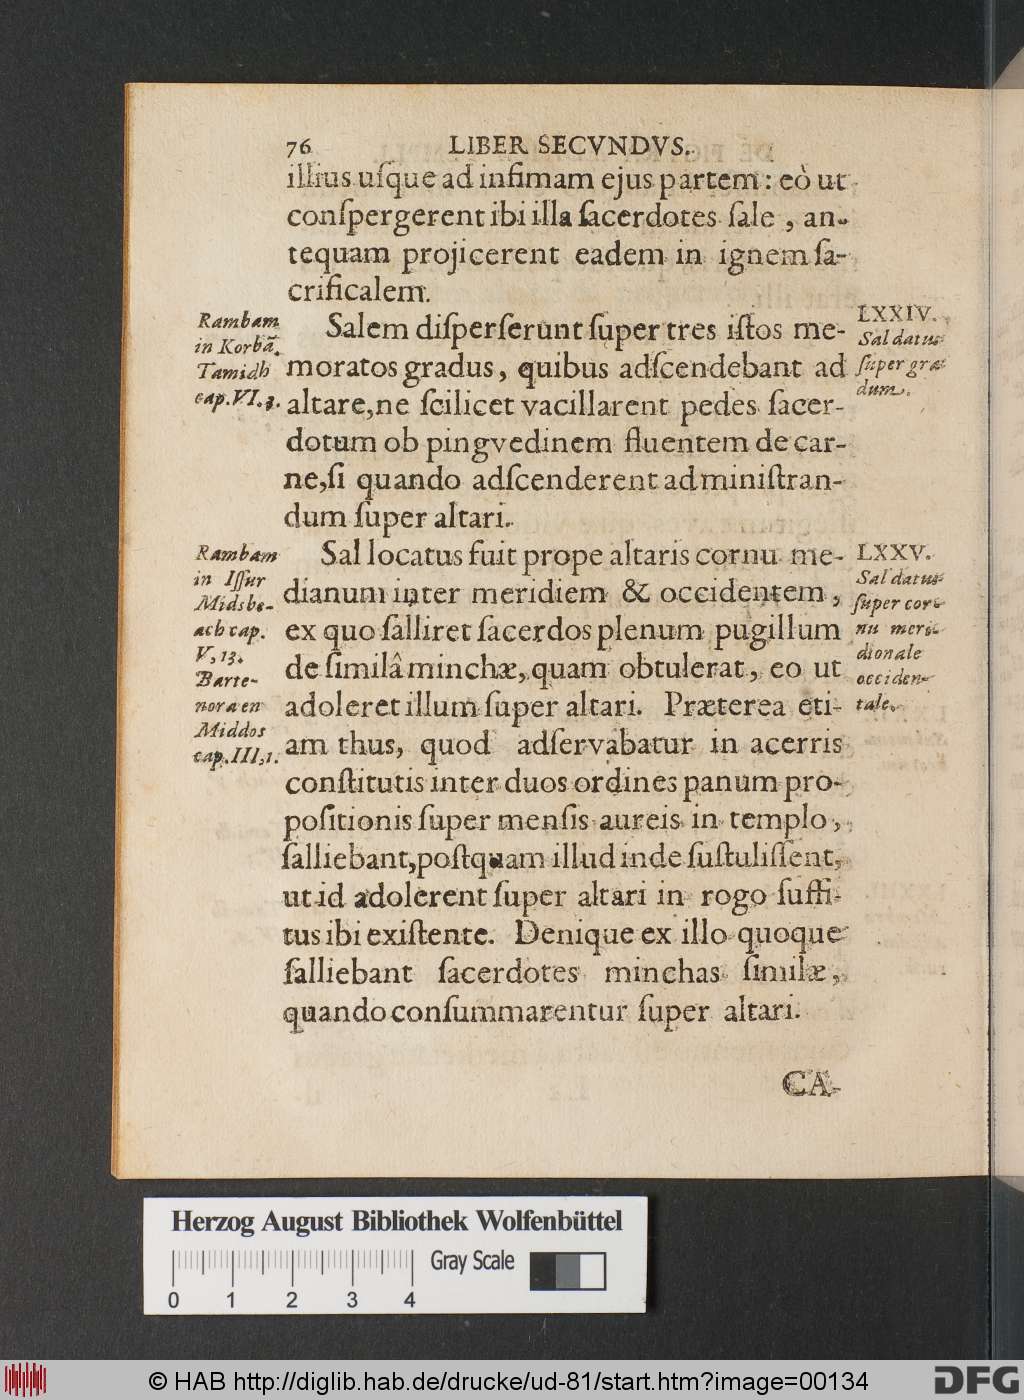 76 LIBER SECVNDVS.
illius uſque ad infimam ejus partem: eò ut
conſpergerent ibi illa ſacerdotes ſale, an-
tequam projicerent eadem in ignem ſa-
crificalem.
Rambam
in Korbã.
Tamidh
cap. VI. 3.
Salem diſperſerunt ſuper tres iſtos me-
moratos gradus, quibus adſcendebant ad
altare, ne ſcilicet vacillarent pedes ſacer-
dotum ob pingvedinem fluentem de car-
ne, ſi quando adſcenderent ad miniſtran-
dum ſuper altari.
LXXIV.
Sal datus
ſuper gra-
dum.
Rambam
in Iſſur
Midsbe-
ach cap.
V, 13.
Barte-
nora en
Middos
cap. III, 1.
Sal locatus fuit prope altaris cornu me-
dianum inter meridiem & occidentem,
ex quo ſalliret ſacerdos plenum pugillum
de ſimilâ minchæ, quam obtulerat, eo ut
adoleret illum ſuper altari. Præterea eti-
am thus, quod adſervabatur in acerris
conſtitutis inter duos ordines panum pro-
poſitionis ſuper menſis aureis in templo,
ſalliebant, poſtquam illud inde ſuſtuliſſent,
ut id adolerent ſuper altari in rogo ſuffi-
tus ibi exiſtente. Denique ex illo quoque
ſalliebant ſacerdotes minchas ſimilæ,
quando conſummarentur ſuper altari.
LXXV.
Sal datus
ſuper cor-
nu meri-
dionale
occiden-
tale.
CA-
Herzog August Bibliothek Wolfenbüttel
Gray Scale
0 1 2 3 4
© HAB http://diglib.hab.de/drucke/ud-81/start.htm?image=00134
DFG